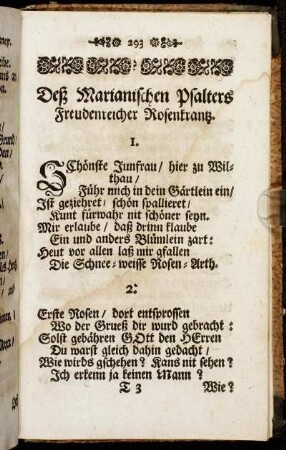 293
Deß Marianischen Psalters
Freudenreicher Rosenkrantz.
1.
SChönste Junfrau / hier zu Wil-
thau /
Führ mich in dein Gärtlein ein /
Ist geziehret / schön spallieret /
Kunt fürwahr nit schöner seyn.
Mir erlaube / daß drinn klaube
Ein und anders Blümlein zart:
Heut vor allen laß mir gfallen
Die Schnee-weisse Rosen-Arth.
2.
Erste Rosen / dort entsprossen
Wo der Grueß dir wurd gebracht:
Solst gebähren GOtt den HErren
Du warst gleich dahin gedacht /
Wie wirds gschehen? Kans nit sehen?
Ich erkenn ja keinen Mann?
T 3
Wie?